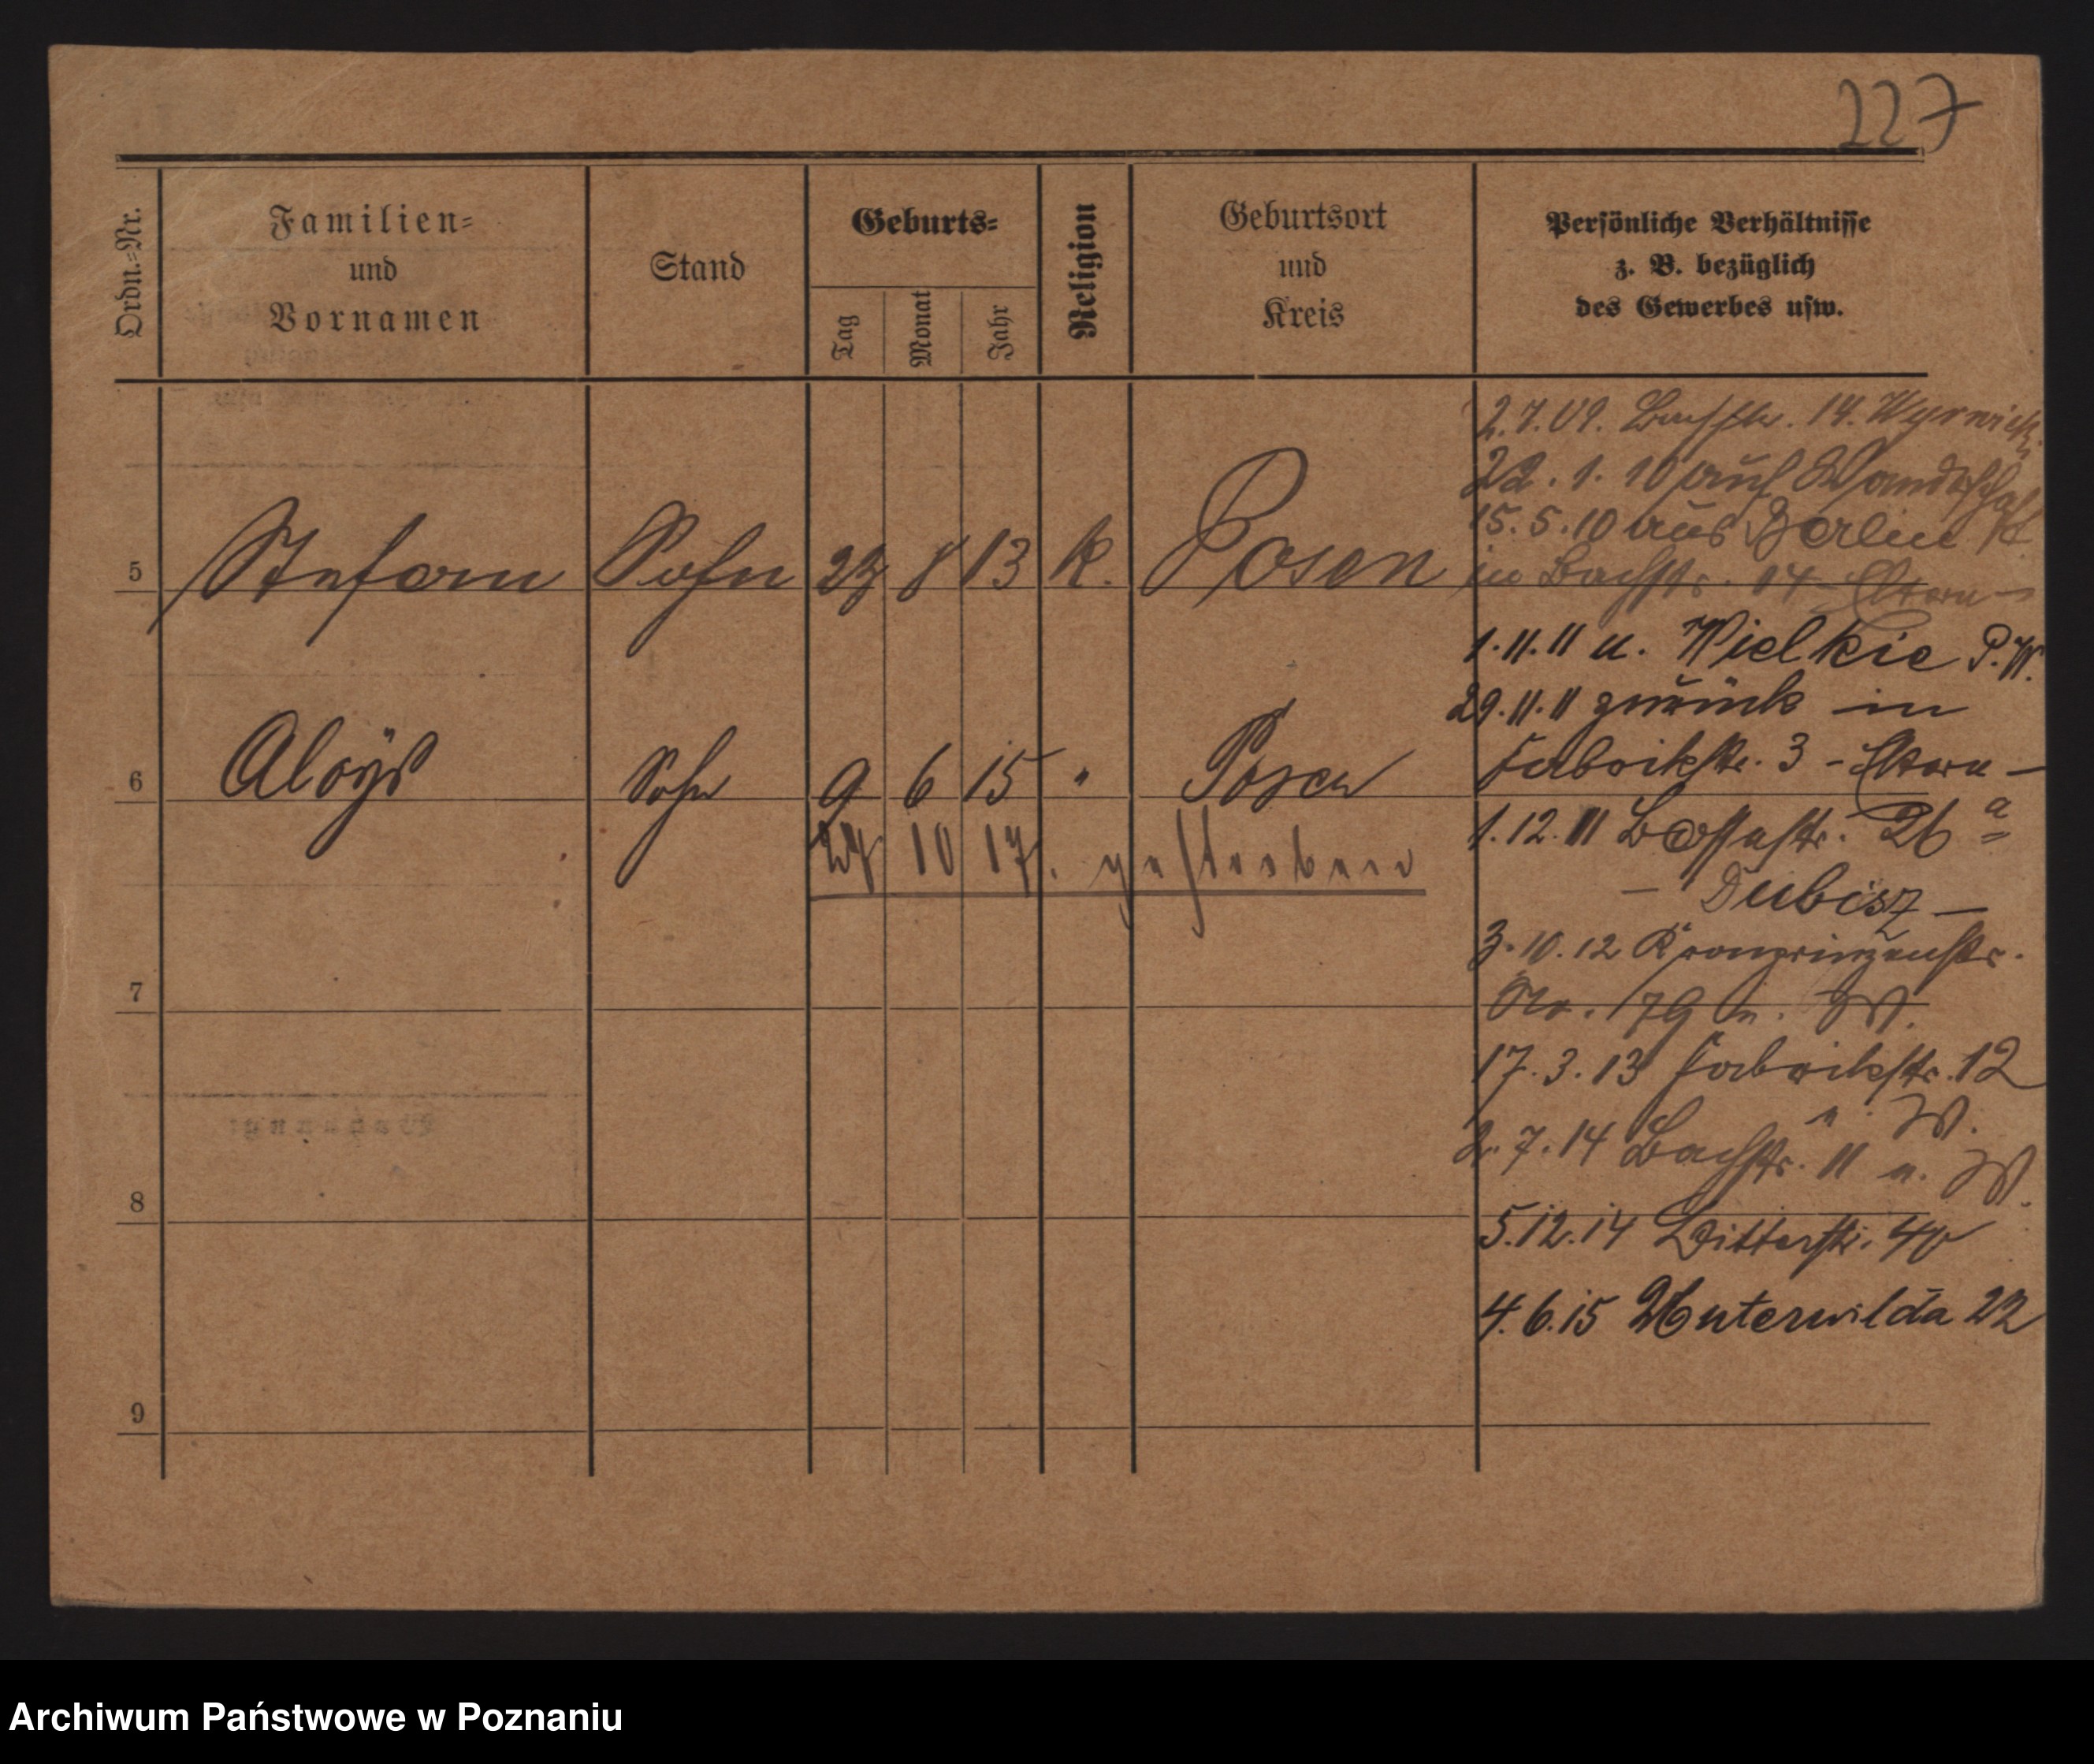 227
Ordn.-Nr.
Familien-
und
Vornamen
Stand
Geburts-
Tag
Monat
Jahr
Religion
Geburtsort
und
Kreis
Persönliche Verhältnisse
z. B. bezüglich
des Gewerbes usw.
5 Stefan Sohn 23 8 13 K. Posen
6 Aloÿs Sohn 9 6 15 " Posen
27 10 17. gestorben
7
8
9
2.7.09. Bachstr. 14.
22.1.10 auf Wanderschaft
15.5.10 aus Berlin
in Bachstr. 14 - Eltern -
1.11.11 n. Wielkie P.W.
29.11.11 zurück in
Fabrikstr. 3 - Eltern -
1.12.11 26 a
- Dubisz -
3.10.12 Kronprinzenstr.
Nr. 79 n. W.
17.3.13 Fabrikstr. 12
n. W.
2.7.14 Bachstr. 11 n. W.
5.12.14 Bitterstr.
4.6.15 Unterwilda 22
Archiwum Państwowe w Poznaniu